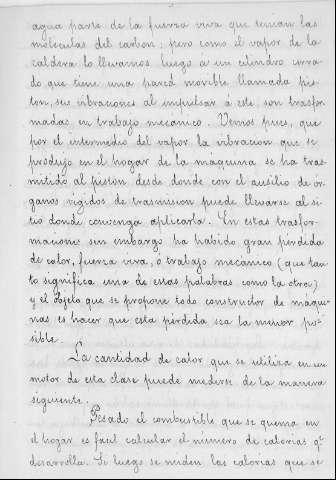 agua parte de la fuerza viva que tenian las
moleculas del carbon; pero como el vapor de la
caldera lo llevamos luego a un cilindro cerra
do que tiene una pared movible llamada pis
ton, sus vibraciones al impulsar á este, son trasfor
madas en trabajo mecánico. Vemos pues, que
por el intermedio del vapor la vibracion que se
produjo en el hogar de la maquina se ha tras
mitido al piston desde donde con el ausilio de ór
ganos rigidos de trasmision puede llevarse al si
tio donde convenga aplicarla. En estas trasfor
maciones sin embargo ha habido gran pérdida
de calor, fuerza viva, o trabajo mecánico (que tan
to significa una de estas palabras como la otra)
y el objeto que se propone todo constructor de maqui
nas es hacer que esta pérdida sea la menor po
sible.
La cantidad de calor que se utiliza en un
motor de esta clase puede medirse de la manera
siguiente.
Pesado el combustible que se quema en
el hogar es facil calcular el número de calorias qe
desarrolla. Si luego se miden las calorias que se